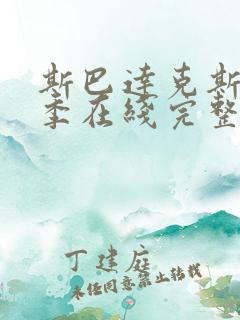 斯巴达克斯
季在线完整
丁建庭
未经同意禁止转载